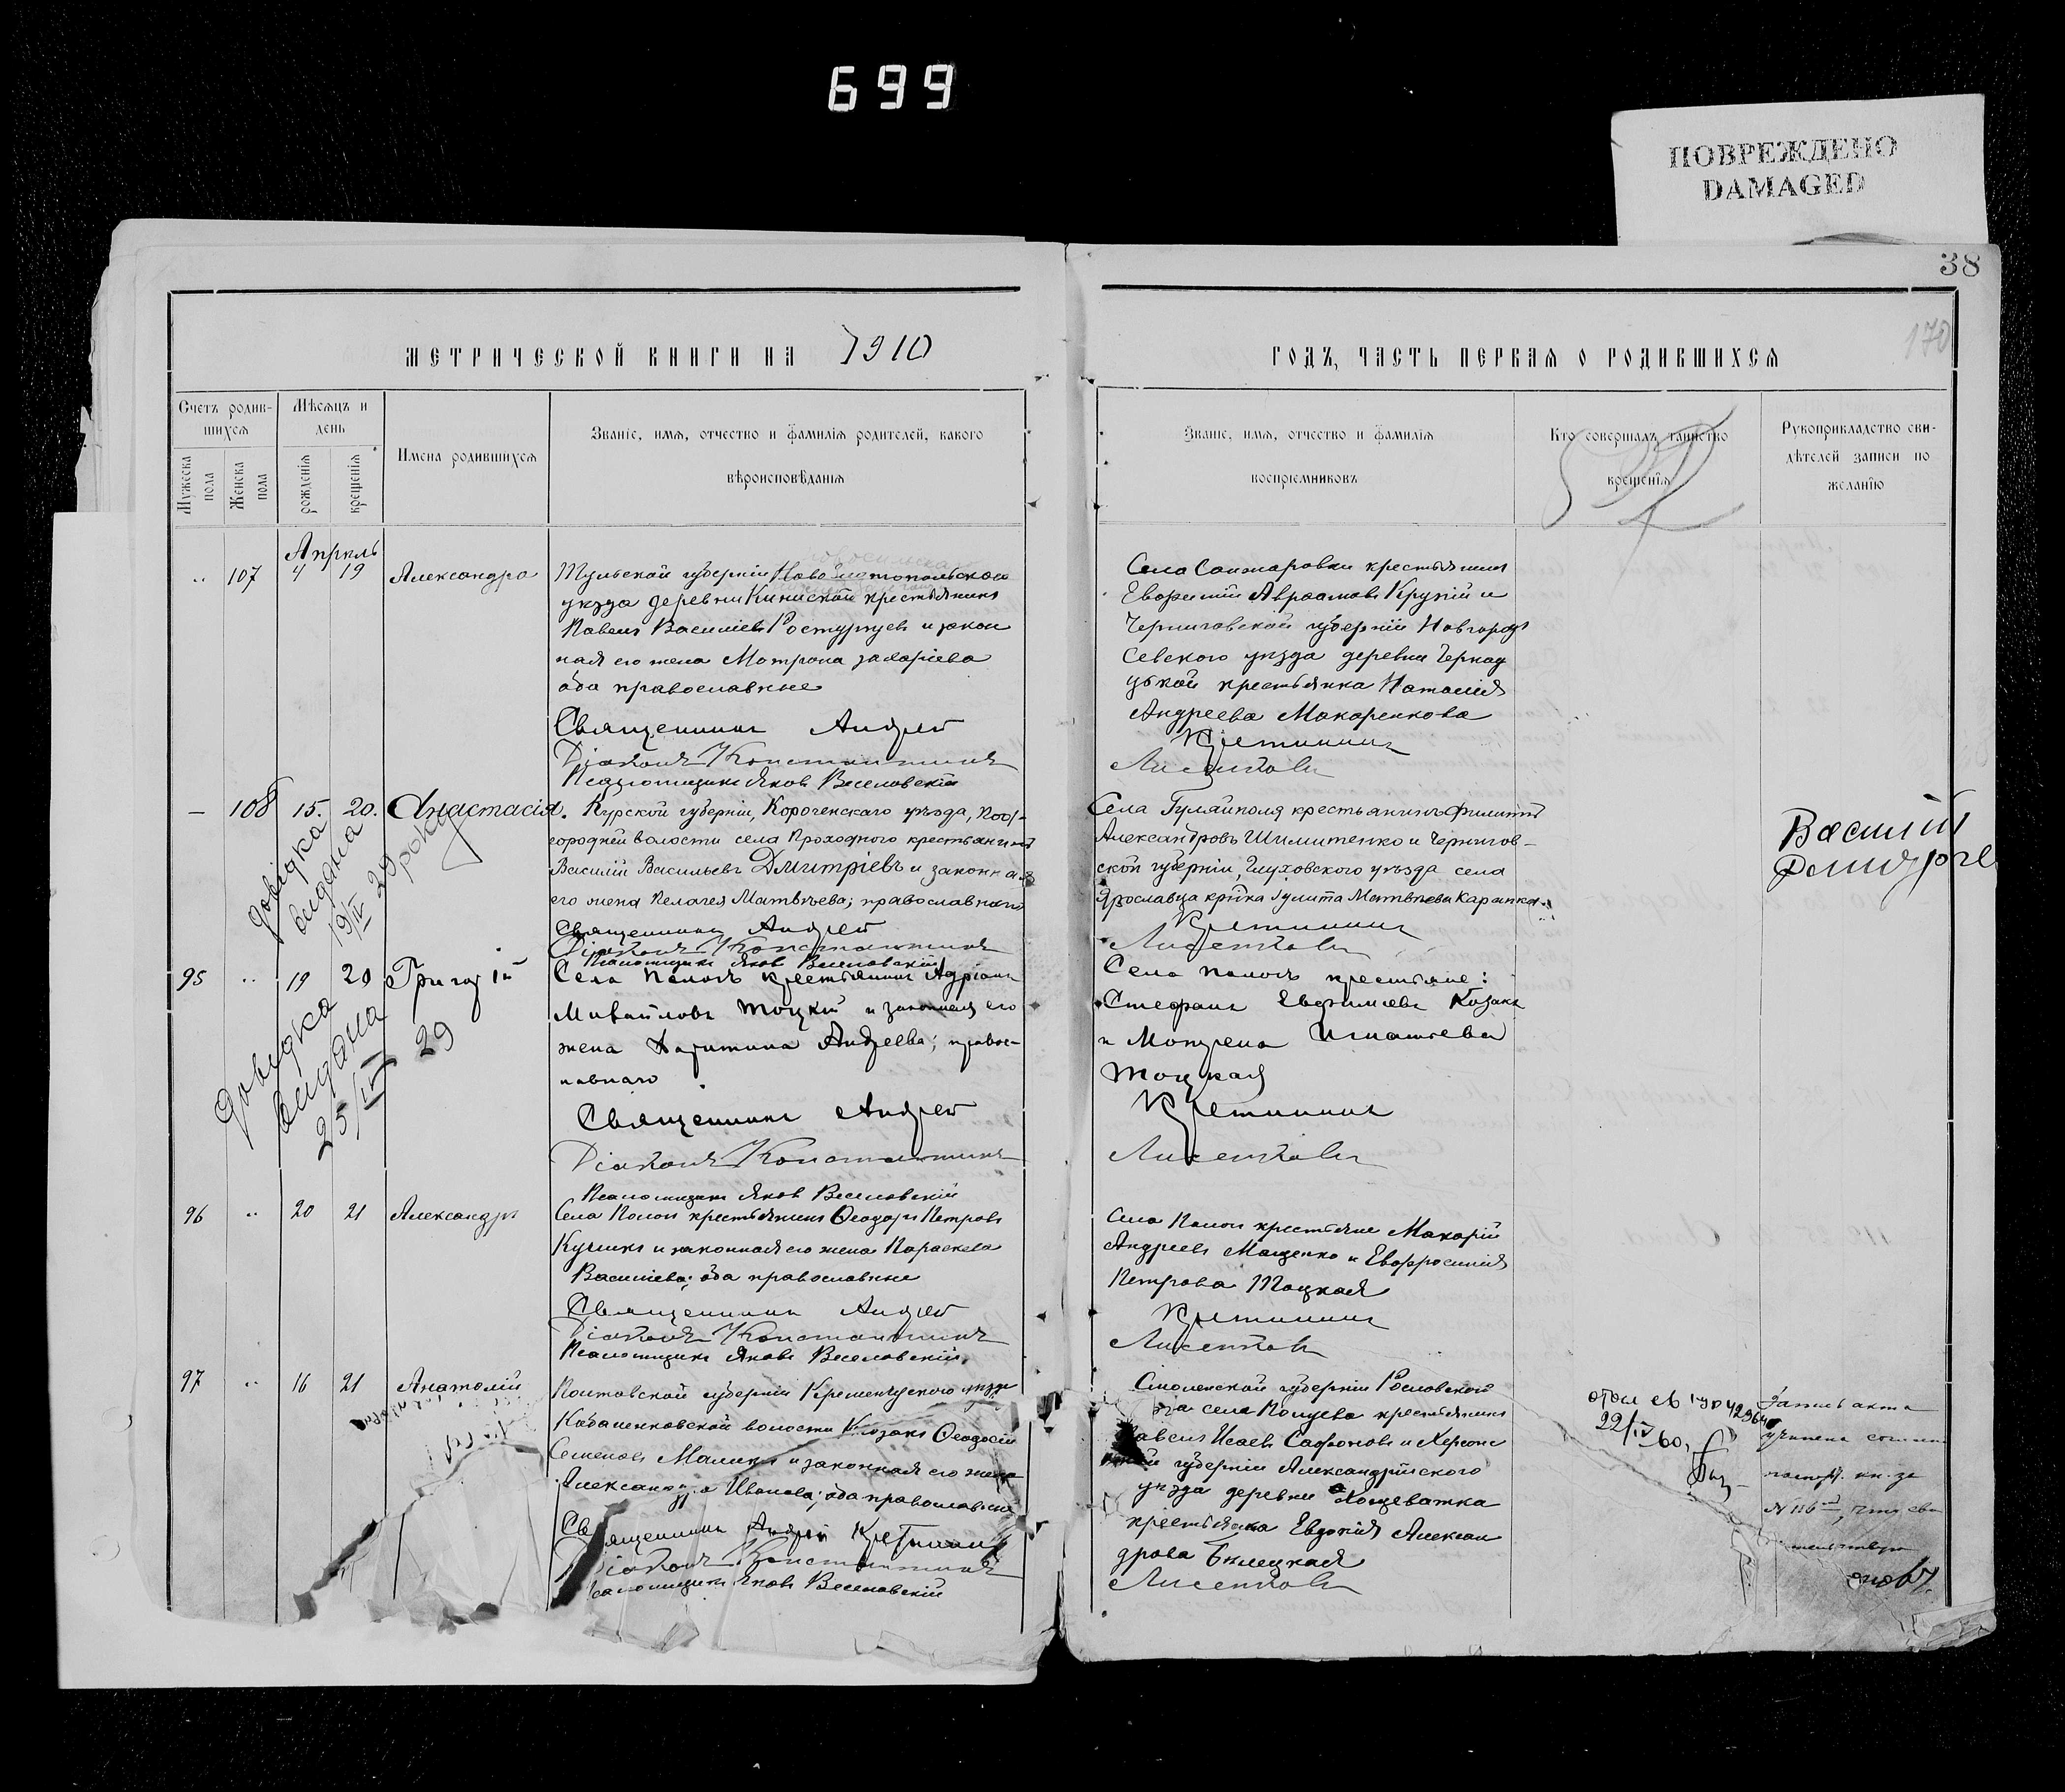 699
ПОВРЕЖДЕНО
DAMAGED
38
170
МЕТРИЧЕСКОЙ КНИГИ НА 1910
ГОДЪ, ЧАСТЬ ПЕРВАЯ О РОДИВШИХСЯ
Счетъ родив-
шихся
Мѣсяцъ и
день
Мужеска
пола
Женска
пола
рожденія
крещенія
Имена родившихся
Званіе, имя, отчество и фамилія родителей, какого
вѣроисповѣданія
Званіе, имя, отчество и фамилія
воспріемниковъ
Кто совершалъ таинство
крещенія
Рукоприкладство сви-
дѣтелей записи по
желанію
Апрель
107 4 19 Александра
Тульской губерніи
уезда деревни крестьянинъ
Павелъ Василіевъ и закон
ная его жена Матрона Захаріева
оба православные
Священникъ Андрей
Діаконъ Константинъ
Псаломщикъ Яковъ Веселовскій
Села крестьянинъ
Евфимій Авраамовъ Крупій и
Черниговской губерніи Новгород
Северского уезда деревни
крестьянка Наталія
Андреева Макаренкова
Кретининъ
Лисенковъ
— 108 15. 20. Анастасія.
Курской губерніи, Корочанскаго уѣзда, Под-
городней волости села Проходного крестьянинъ
Василій Васильевъ Дмитріевъ и законная
его жена Пелагея Матвѣева; православнаго
Священникъ Андрей
Діаконъ Константинъ
Псаломщикъ Яковъ Веселовскій
Села Гуляйполя крестьянинъ Филиппъ
Александровъ Шимитенко и Чернигов-
ской губерніи, Глуховского уѣзда села
Ярославца Матвѣева
Кретининъ
Лисенковъ
Василій
довідка
видана
19/IV 29 року
95 19 20 Григорій
Села Пологъ крестьянинъ Адріанъ
Михайловъ Тоцкій и законная его
жена Харитина Андреева; правос-
лавнаго
Священникъ Андрей
Діаконъ Константинъ
Псаломщикъ Яковъ Веселовскій
Села Пологъ крестьяне:
Стефанъ Евфиміевъ Козакъ
и Мотрона Игнатьева
Тоцкая
Кретининъ
Лисенковъ
довідка
видана
25/IV 29
96 20 21 Александръ
Села Пологи крестьянинъ Феодоръ Петровъ
и законная его жена Параскева
Василіева; оба православные
Священникъ Андрей
Діаконъ Константинъ
Псаломщикъ Яковъ Веселовскій
Села Пологи крестьяне Макарій
Андреевъ Мащенко и Евфросинія
Петрова Тоцкая
Кретининъ
Лисенковъ
97 16 21 Анатолій
Полтавской губерніи Кременчугского уезда
волости Козакъ Феодосій
Семеновъ Маликъ и законная его жена
Александра Иванова; оба православные
Священникъ Андрей Кретининъ
Діаконъ Константинъ
Псаломщикъ Яковъ Веселовскій
Смоленской губерніи Рославской
села крестьянинъ
Павелъ Исаевъ Сафоновъ и Херсонс
кой губерніи Александрійского
уезда деревни
крестьянка Евдокія Алексан
дрова Билецкая
Лисенковъ
22/IV 60.
Запись акта
учинена